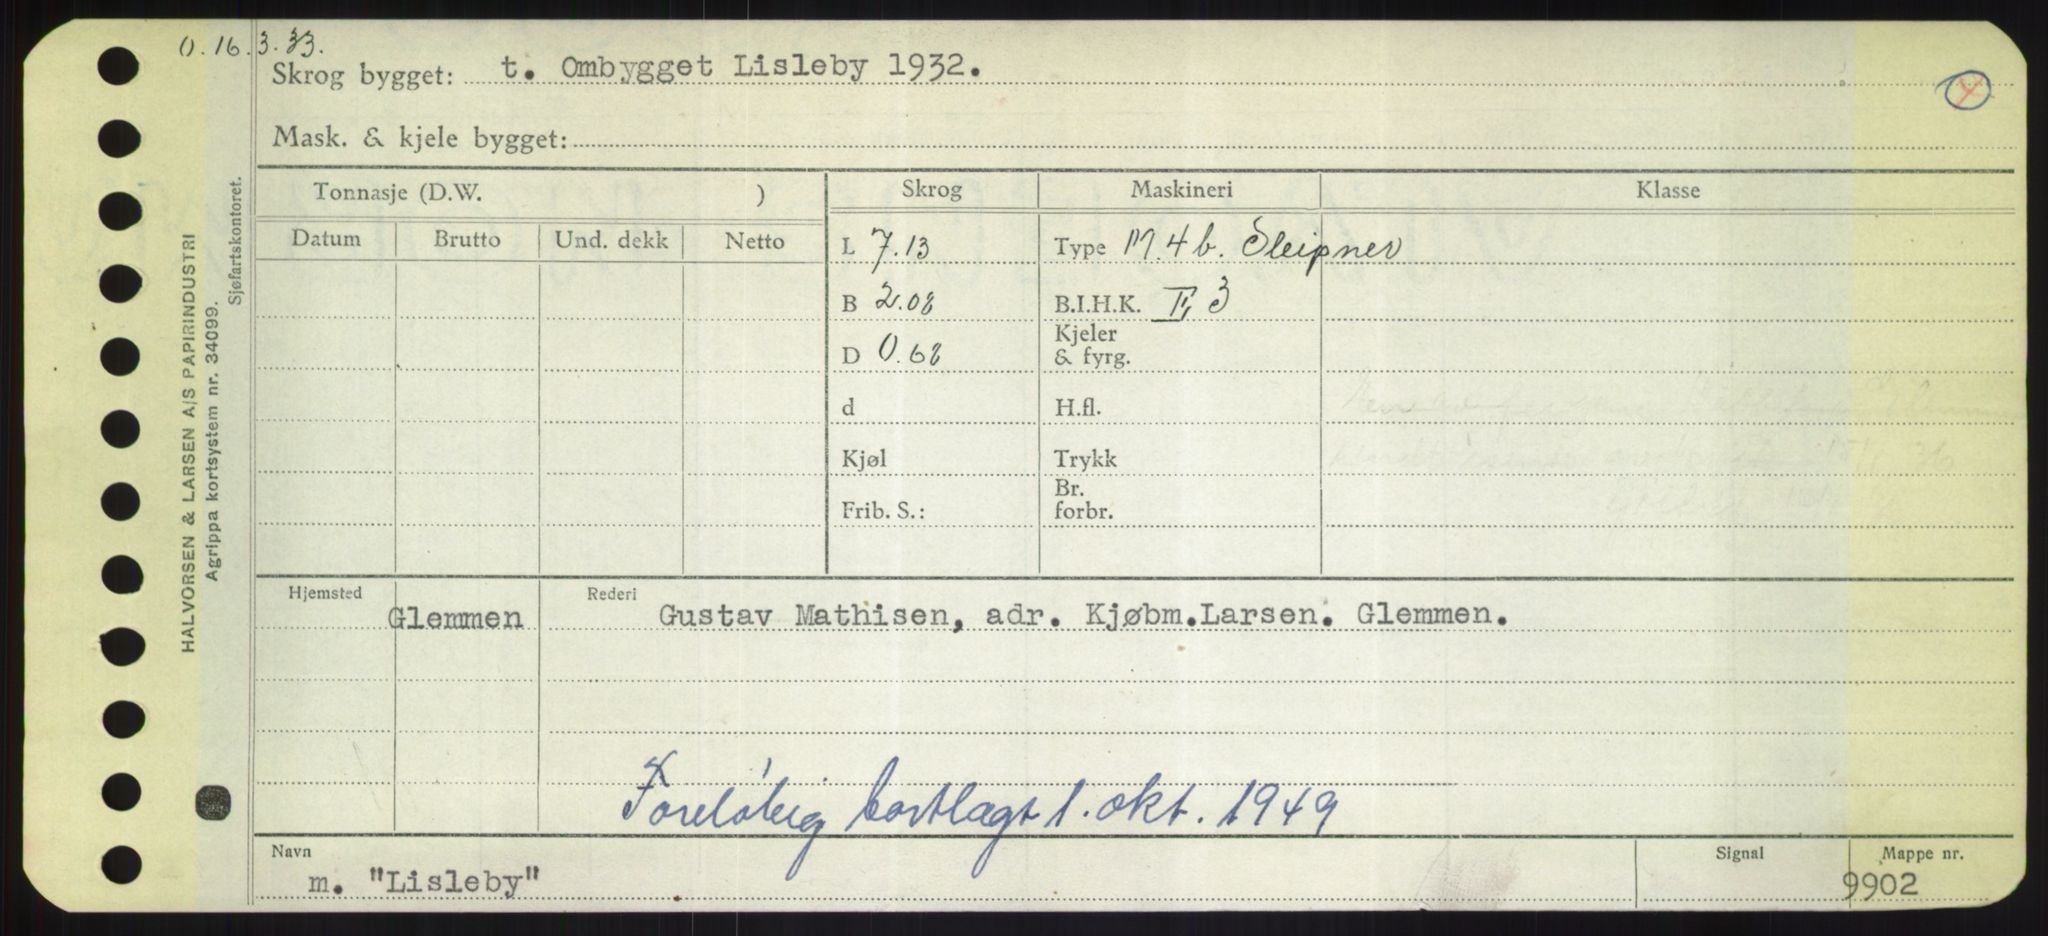 O. 16.3.33.
Skrog bygget: t. Ombygget Lisleby 1932.
Mask. & kjele bygget:
Tonnasje (D.W. )
Skrog Maskineri Klasse
Datum Brutto Und. dekk Netto
L 7.13 Type M. 4 b. Sleipner
B 2.08 B.I.H.K. II, 3
D 0.68 Kjeler & fyrg.
d H.fl.
Kjøl Trykk
Frib. S.: Br. forbr.
Hjemsted Rederi
Glemmen Gustav Mathisen, adr. Kjøbm.Larsen. Glemmen.
Foreløbig bortlagt 1. okt. 1949
Navn Signal Mappe nr.
m. "Lisleby" 9902
HALVORSEN & LARSEN A/S PAPIRINDUSTRI
Agrippa kortsystem nr. 34099.
Sjøfartskontoret.